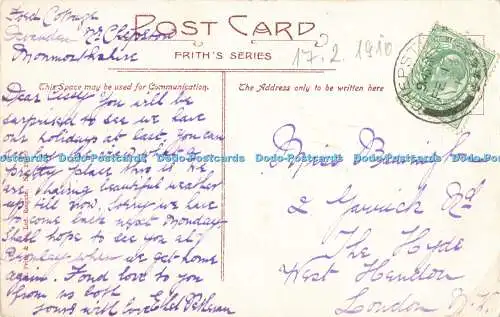 Ford Cottage
Devauden Nr Chepstow
Monmouthshire
POST CARD
FRITH'S SERIES
17.2.1910
CHEPSTOW
This Space may be used for Communication.
The Address only to be written here
Dear Cissy You will be
surprised to see we have
our holidays at last. You can
see what a
pretty place this is. We
are having beautiful weather
up till now. Sorry we have
to come back next Monday
Shall hope to see you all
Monday when we get home
again. Fond love to you
from us both
Yours with love Ethel
Miss
2 Garrick Rd
The Hyde
West Hendon
London N.W.
Dodo Postcards Dodo Postcards Dodo Postcards Dodo Postcards Dodo Postcards